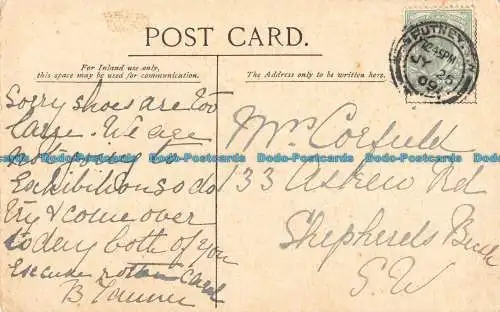 POST CARD.
For Inland use only,
this space may be used for communication.
The Address only to be written here.
PUTNEY S.W
12.45PM
JY 25
09
Sorry shoes are too
large. We are
not going to
Exhibition so do
try & come over
today both of you
Excuse rotten card
B. Tanner
Mrs Corfield
133 Askew Rd
Shepherds Bush
S.W
Dodo-Postcards Dodo-Postcards Dodo-Postcards Dodo-Postcards Dodo-Postcards